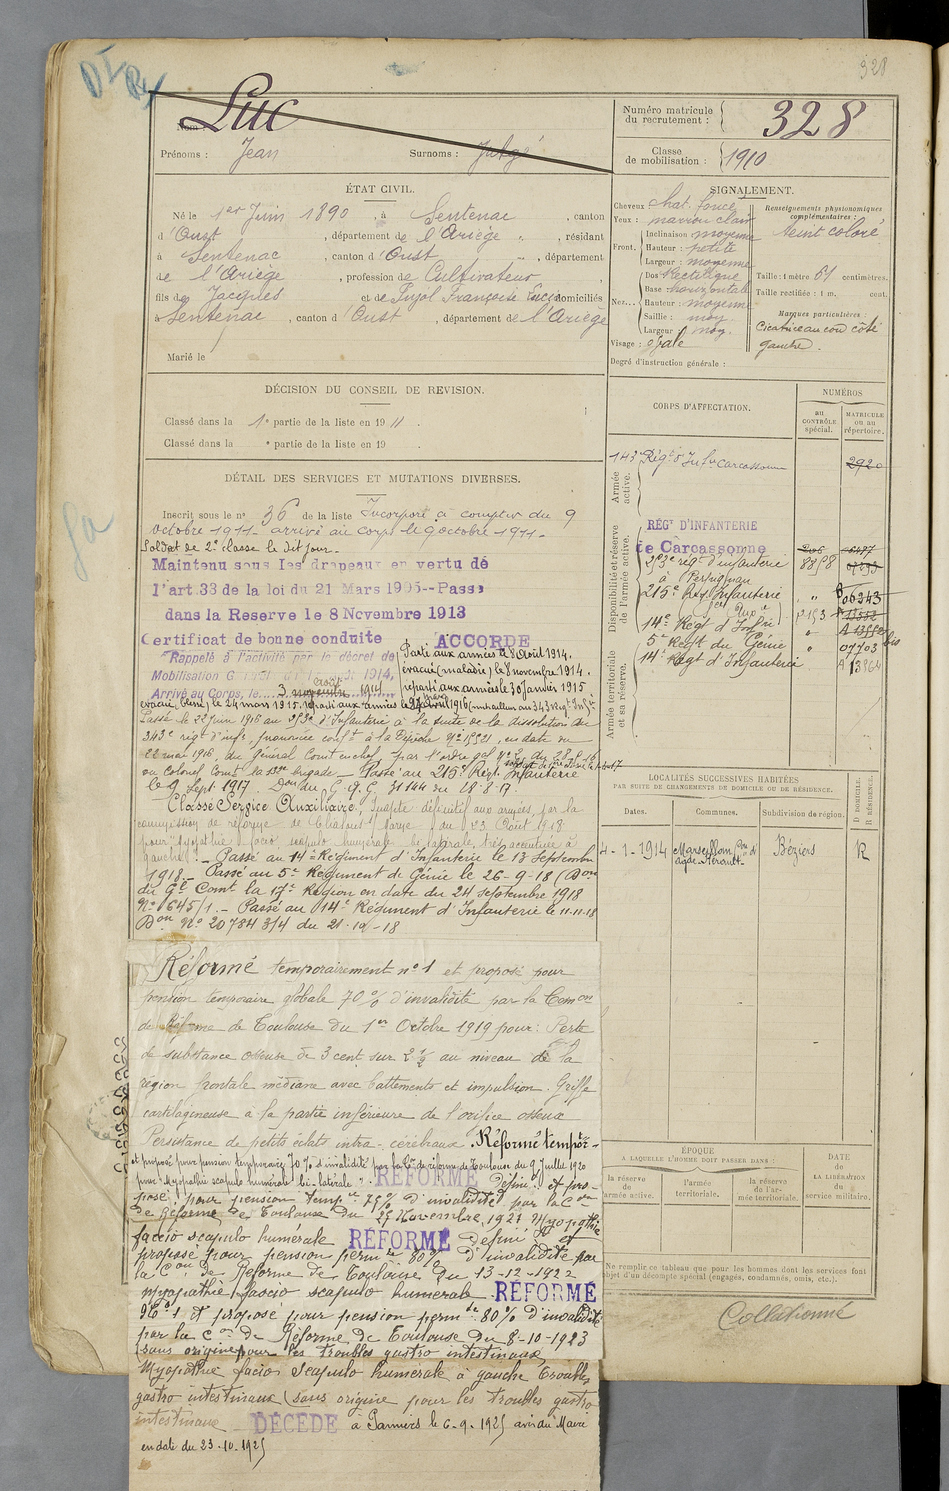 328
Nom : Luc
Prénoms : Jean Surnoms :
Numéro matricule du recrutement : 328
Classe de mobilisation : 1910
ÉTAT CIVIL.
Né le 1er Juin 1890, à Sentenac, canton
d'Oust, département de l'Ariège, résidant
à Sentenac, canton d'Oust, département
de l'Ariège, profession de Cultivateur,
fils de Jacques et de Pujol Françoise domiciliés
à Sentenac, canton d'Oust, département de l'Ariège
Marié le
SIGNALEMENT.
Cheveux : chat. foncé
Yeux : marron clair
Front. Inclinaison moyenne
Hauteur : petite
Largeur : moyenne
Nez... Dos Rectiligne
Base horizontale
Hauteur : moyenne
Saillie : moy
Largeur : moy.
Visage : ovale
Renseignements physionomiques complémentaires :
teint coloré
Taille : 1 mètre 61 centimètres.
Taille rectifiée : 1 m. cent.
Marques particulières :
Cicatrice au cou côté
gauche.
Degré d'instruction générale :
DÉCISION DU CONSEIL DE REVISION.
Classé dans la 1e partie de la liste en 1911.
Classé dans la e partie de la liste en 19
DÉTAIL DES SERVICES ET MUTATIONS DIVERSES.
Inscrit sous le n° 36 de la liste Incorporé à compter du 9
octobre 1911. arrivé au corps le 9 octobre 1911.
Soldat de 2e classe le dit jour.
Maintenu sous les drapeaux en vertu de
l'art.33 de la loi du 21 Mars 1905--Passé
dans la Reserve le 8 Novembre 1913
Certificat de bonne conduite ACCORDÉ
Rappelé à l'activité par le décret de
Mobilisation G 1914,
Arrivé au Corps, le 3 août 1914
Parti aux armées le 8 Août 1914.
évacué (maladie) le 8 novembre 1914.
reparti aux armées le 30 Janvier 1915
évacué (blessé) le 24 mars 1915. reparti aux armées le 1916
Passé le 22 Juin 1916 au 253e d'Infanterie à la suite de la dissolution du
343e régt d'inf., prononcée conft à la Dépêche n° 15521, en date du
22 mai 1916, du Général Comt en chef, par l'ordre gal n° 2 du
du Colonel Comt la brigade - Passé au 215e Régt. Infanterie
le 9 Sept. 1917. Don du G.Q.G. 31144 du 28.8.17.
Classé Service Auxiliaire, Inapte définitif aux armées, par la
commission de réforme de du 23 Août 1918
pour myopathie facio scapulo humérale très accentuée à
gauche. - Passé au 14e Régiment d'Infanterie le 13 Septembre
1918. - Passé au 5e Régiment de Génie le 26-9-18 (Don
du Gl Comt la 17e Région en date du 24 septembre 1918
N° 1645/1. - Passé au 14e Régiment d'Infanterie le 11.11.18
Don N° 20784 3/4 du 21-10-18
Réformé temporairement n° 1 et proposé pour
pension temporaire globale 70% d'invalidité par la Comon
de Réforme de Toulouse du 1er Octobre 1919 pour : Perte
de substance osseuse de 3 cent sur 2 ½ au niveau de la
région frontale médiane avec battements et impulsion. Griffe
cartilagineuse à la partie inférieure de l'orifice osseux
Persistance de petits éclats intra-cérébraux. Réformé tempor-
et proposé pour pension temporaire 70% d'invalidité par la Con de réforme de Toulouse du 9 Juillet 1920
pour "Myopathie scapulo humérale bi-latérale". RÉFORMÉ et pro-
posé pour pension tempre 75% d'invalidité par la Con
de Réforme de Toulouse du 25 Novembre 1921 Myopathie
faccio scapulo humérale RÉFORMÉ définif et
proposé pour pension permte 80% d'invalidité par
la Con de Réforme de Toulouse du 13-12-1922
myopathie faccio scapulo humérale RÉFORMÉ
N° 1 et proposé pour pension permte 80% d'invalidité
par la Con de Réforme de Toulouse du 8-10-1923
(sans origine pour les troubles gastro intestinaux)
Myopathie facio scapulo humérale à gauche troubles
gastro intestinaux (sans origine pour les troubles gastro
intestinaux DÉCÉDÉ à Pamiers le 6-9-1925 avis du Maire
en date du 23.10.1925
CORPS D'AFFECTATION.
NUMÉROS
au CONTRÔLE spécial.
MATRICULE ou au répertoire.
Armée active.
143e Régt d'Infie Carcassonne 2920
Disponibilité et réserve de l'armée active.
RÉGt D'INFANTERIE
de Carcassonne
253e régt d'infanterie 8858
à Perpignan
215e Régt Infanterie 06343
14e Régt d'Infie
5e Régt du Génie 07703 bis
14e Régt d'Infanterie A 13964
Armée territoriale et sa réserve.
LOCALITÉS SUCCESSIVES HABITÉES
PAR SUITE DE CHANGEMENTS DE DOMICILE OU DE RÉSIDENCE.
Dates. Communes. Subdivision de région. D DOMICILE. R RÉSIDENCE.
4-1-1914 Marseillan Con d'Agde-Hérault- Béziers R
ÉPOQUE
A LAQUELLE L'HOMME DOIT PASSER DANS :
la réserve de l'armée active.
l'armée territoriale.
la réserve de l'armée territoriale.
DATE de LA LIBÉRATION du service militaire.
Ne remplir ce tableau que pour les hommes dont les services font
l'objet d'un décompte spécial (engagés, condamnés, omis, etc.).
Collationné